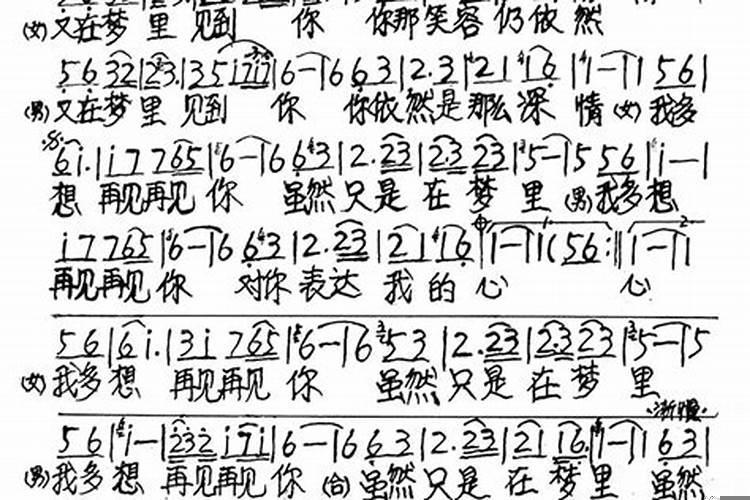 (女)又在梦里 见到 你 你那笑容仍依然
5 6 32 | 23. | 35 i 7i7 | 6 — | 6 6 3 | 2. 3 | 21 16 | 1 — | 1 5 6 |
(男)又在梦里 见到 你 你依然是那么深 情 (女)我多
6 i. | i 7 7 65 | 6 — | 6 6 3 | 2. 23 | 2.3 23 | 5 — | 5 56 | i — |
想 再见再见 你 虽然只是 在 梦 里 (男)我多想
i 7 7 65 | 6 — | 6 6 3 | 2. 23 | 21 16 | 1 — | 1 (56 :‖ 1 — | 1
再见再见 你 对你 表达 我 的 心 心
5 6 | 6 i. | 3 i 7 65 | 6 — | 6 5 3 | 2. 23 | 2.3 23 | 5 — | 5
(女)我多想 再见再见 你 虽然 只是 在 梦 里
渐慢
5 6 | i — | 2 3 2 i 7 i | 6 — | 6 6 3 | 2. 23 | 21 16. | 1 — | 1 6 3 |
(男)我多想 再见再见 你 (合)虽然只是 在 梦里 虽然